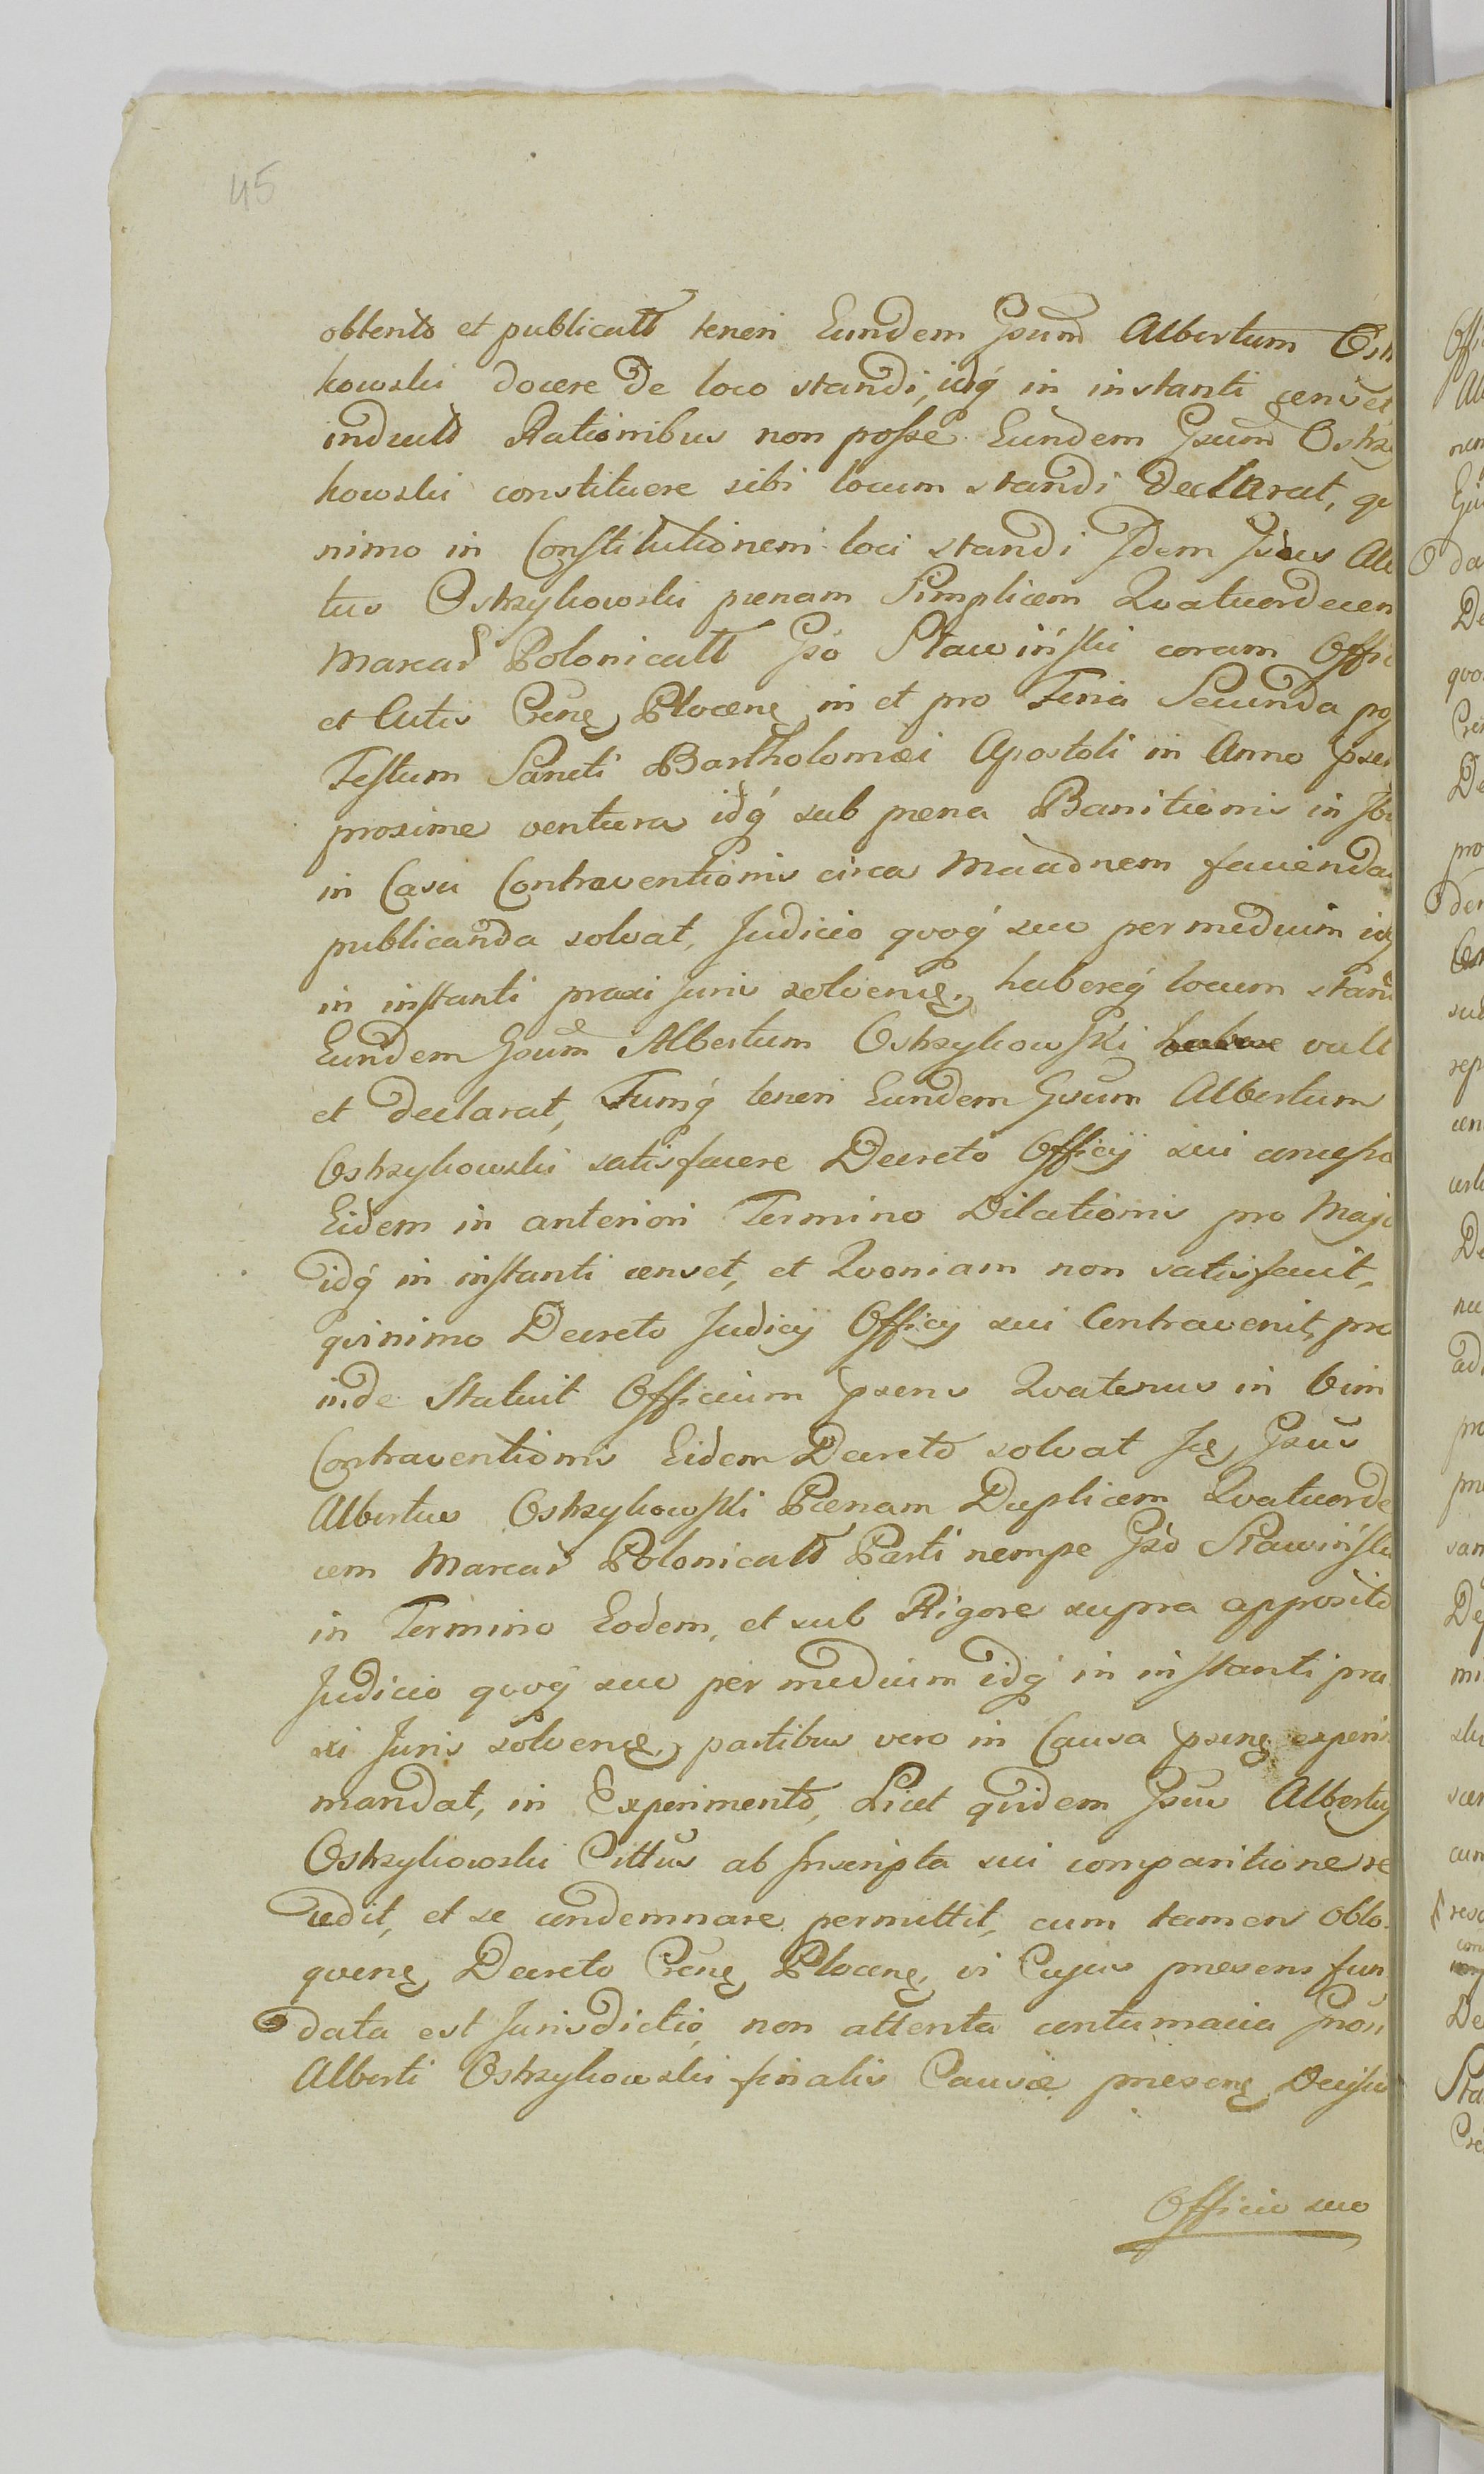 45
obtento et publicatt teneri Eundem Gsum Albertum Ostr
kowski docere de loco standi, idq́ in instanti censet
inductis Rationibus non posse Eundem Gsum Ostrzy
kowski constituere sibi locum standi declarat, qu
nimo in Constitutionem loci standi Idem Gsus Alb
tus Ostrzykowski pœnam Simplicem Quatuordecem
Marcar Polonicatt Gso Sławiński coram Offic
et Actis Crens Plocens in et pro Feria Secunda po
Festum Sancti Bartholomæi Apostoli in Anno pser
proxime ventura idq́ sub pœna Banitionis in
in Casu Contraventionis circa Maadnem facienda
publicanda solvat, Judicio quoq́ suo per medium idq́
in instanti praxi Juris solvens, habereq́ locum stand
Eundem Gsum Albertum Ostrzykowski habere vult
et declarat, Tumq́ teneri Eundem Gsum Albertum
Ostrzykowski satisfacere Decreto Officij sui concesso
Eidem in anteriori Termino Dilationis pro Maj
idq́ in instanti censet, et Quoniam non satisfecit,
quinimo Decreto Judicij Officij sui Contravenit, pro
inde Statuit Officium psens Quatenus in Vim
Contraventionis Eidem Decreto solvat Gsus
Albertus Ostrzykowski Pœnam Duplicem Quatuorde
cem Marcar Polonicatt Parti nempe Gso Sławińsk
in Termino Eodem, et sub Rigore supra apposito
Judicio quoq́ suo per medium idq́ in instanti pra
xi Juris solvens, partibus vero in Causa psens experi
mandat, in Experimento, Licet quidem Gsus Albertus
Ostrzykowski Cittus ab Inscripta sui comparitione re
cedit, et se condemnare permittit, cum tamen oblo
quens Decreto Crens Plocens, vi Cujus præsens fun
data est Jurisdictio, non attenta contumacia Gnon
Alberti Ostrzykowski finalis Causæ præsens Decisio
Officio suo